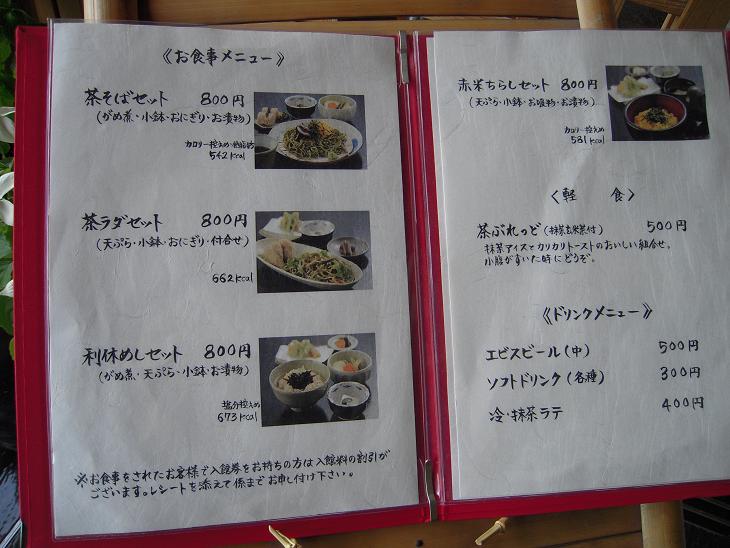 《お食事メニュー》
茶そばセット 800円
(がめ煮・小鉢・おにぎり・お漬物)
カロリー控えめ・低脂肪
542kcal
茶ラダセット 800円
(天ぷら・小鉢・おにぎり・付合せ)
662kcal
利休めしセット 800円
(がめ煮・天ぷら・小鉢・お漬物)
塩分控えめ
673kcal
※お食事をされたお客様で入館券をお持ちの方は入館料の割引が
ございます。レシートを添えて係までお申し付け下さい。
赤米ちらしセット 800円
(天ぷら・小鉢・お吸物・お漬物)
カロリー控えめ
581kcal
〈軽 食〉
茶ぶれっど(抹茶玄米茶付) 500円
抹茶アイスとカリカリトーストのおいしい組合せ。
小腹がすいた時にどうぞ。
《ドリンクメニュー》
エビスビール(中) 500円
ソフトドリンク(各種) 300円
冷・抹茶ラテ 400円